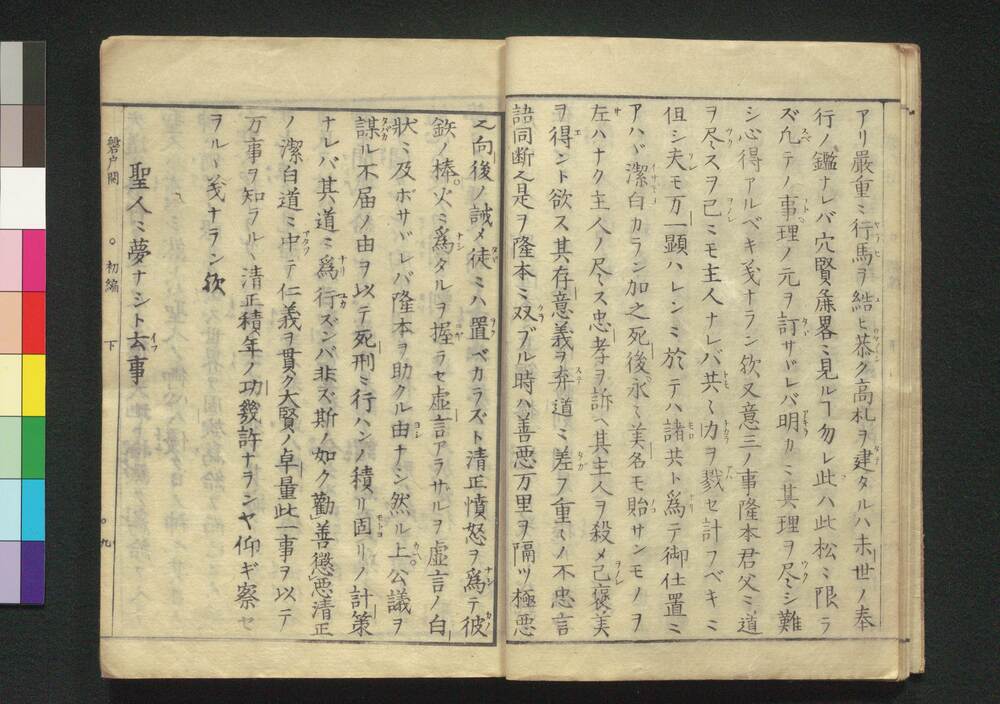 アリ嚴重ミ行馬ヲ結ヒ恭ク高札ヲ建タルハ末世ノ奉
行ノ鑑ナレバ穴賢麁畧ミ見ルヿ勿レ此ハ此松ミ限ラ
ズ凢テノ事理ノ元ヲ訂サヾレバ明カミ其理ヲ尽シ難
シ心得アルベキ𫝆ナラン欤又意三ノ事隆本君父ミ道
ヲ尽スヲ己ミモ主人ナレバ共〻力ヲ戮セ計フベキミ
但シ夫モ万一顕ハレンミ於テハ諸共ト爲テ御仕置ミ
アハヾ潔白カラン加之死後永〻美名モ貽サンモノヲ
左ハナク主人ノ尽ス忠孝ヲ訴ヘ其主人ヲ殺メ己褒美
ヲ得ント欲ス其存意義ヲ弃道ミ差フ重〻ノ不忠言
語同断之是ヲ隆本ミ双ブル時ハ善悪万里ヲ隔ツ極悪
之向後ノ誡メ徒ミハ置ベカラズト清正憤怒ヲ爲テ彼
鉄ノ棒火ミ爲タルヲ握ラセ虚言アラサルヲ虚言ノ白
狀ミ及ボサヾレバ隆本ヲ助クル由ナシ然ル上公議ヲ
謀ル不届ノ由ヲ以テ死刑ミ行ハンノ積リ固リノ計策
ナレバ其道ミ爲行ズンバ非ズ斯ノ如ク勸善懲悪清正
ノ潔白道ミ中テ仁義ヲ貫ク大賢ノ卓量此一事ヲ以テ
万事ヲ知ラル〻清正積年ノ功幾許ナランヤ仰ギ察セ
ヲル〻𫝆ナラン欤
聖人ミ夢ナシト云事
磐戸開 ○初編 下 ○九